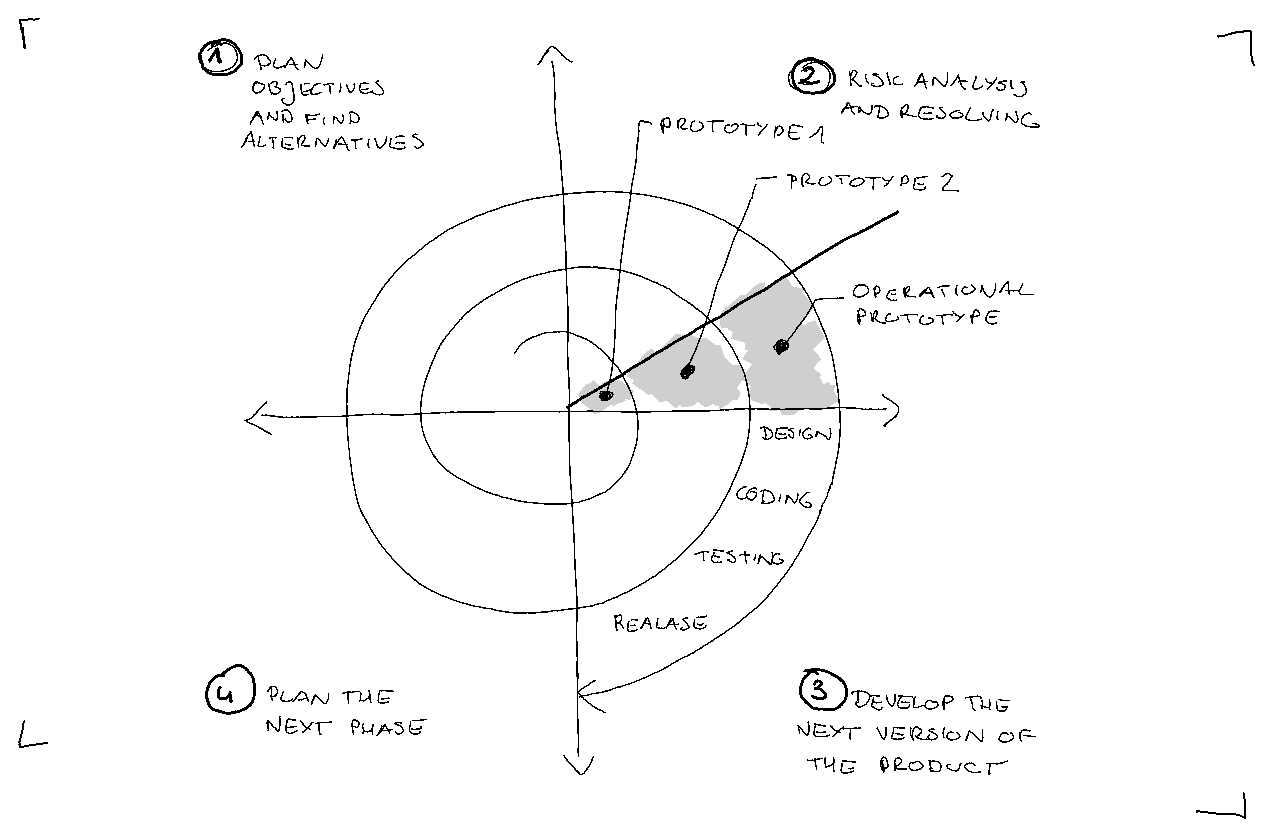 1 PLAN
OBJECTIVES
AND FIND
ALTERNATIVES
2 RISK ANALYSIS
AND RESOLVING
PROTOTYPE 1
PROTOTYPE 2
OPERATIONAL
PROTOTYPE
DESIGN
CODING
TESTING
REALASE
4 PLAN THE
NEXT PHASE
3 DEVELOP THE
NEXT VERSION OF
THE PRODUCT